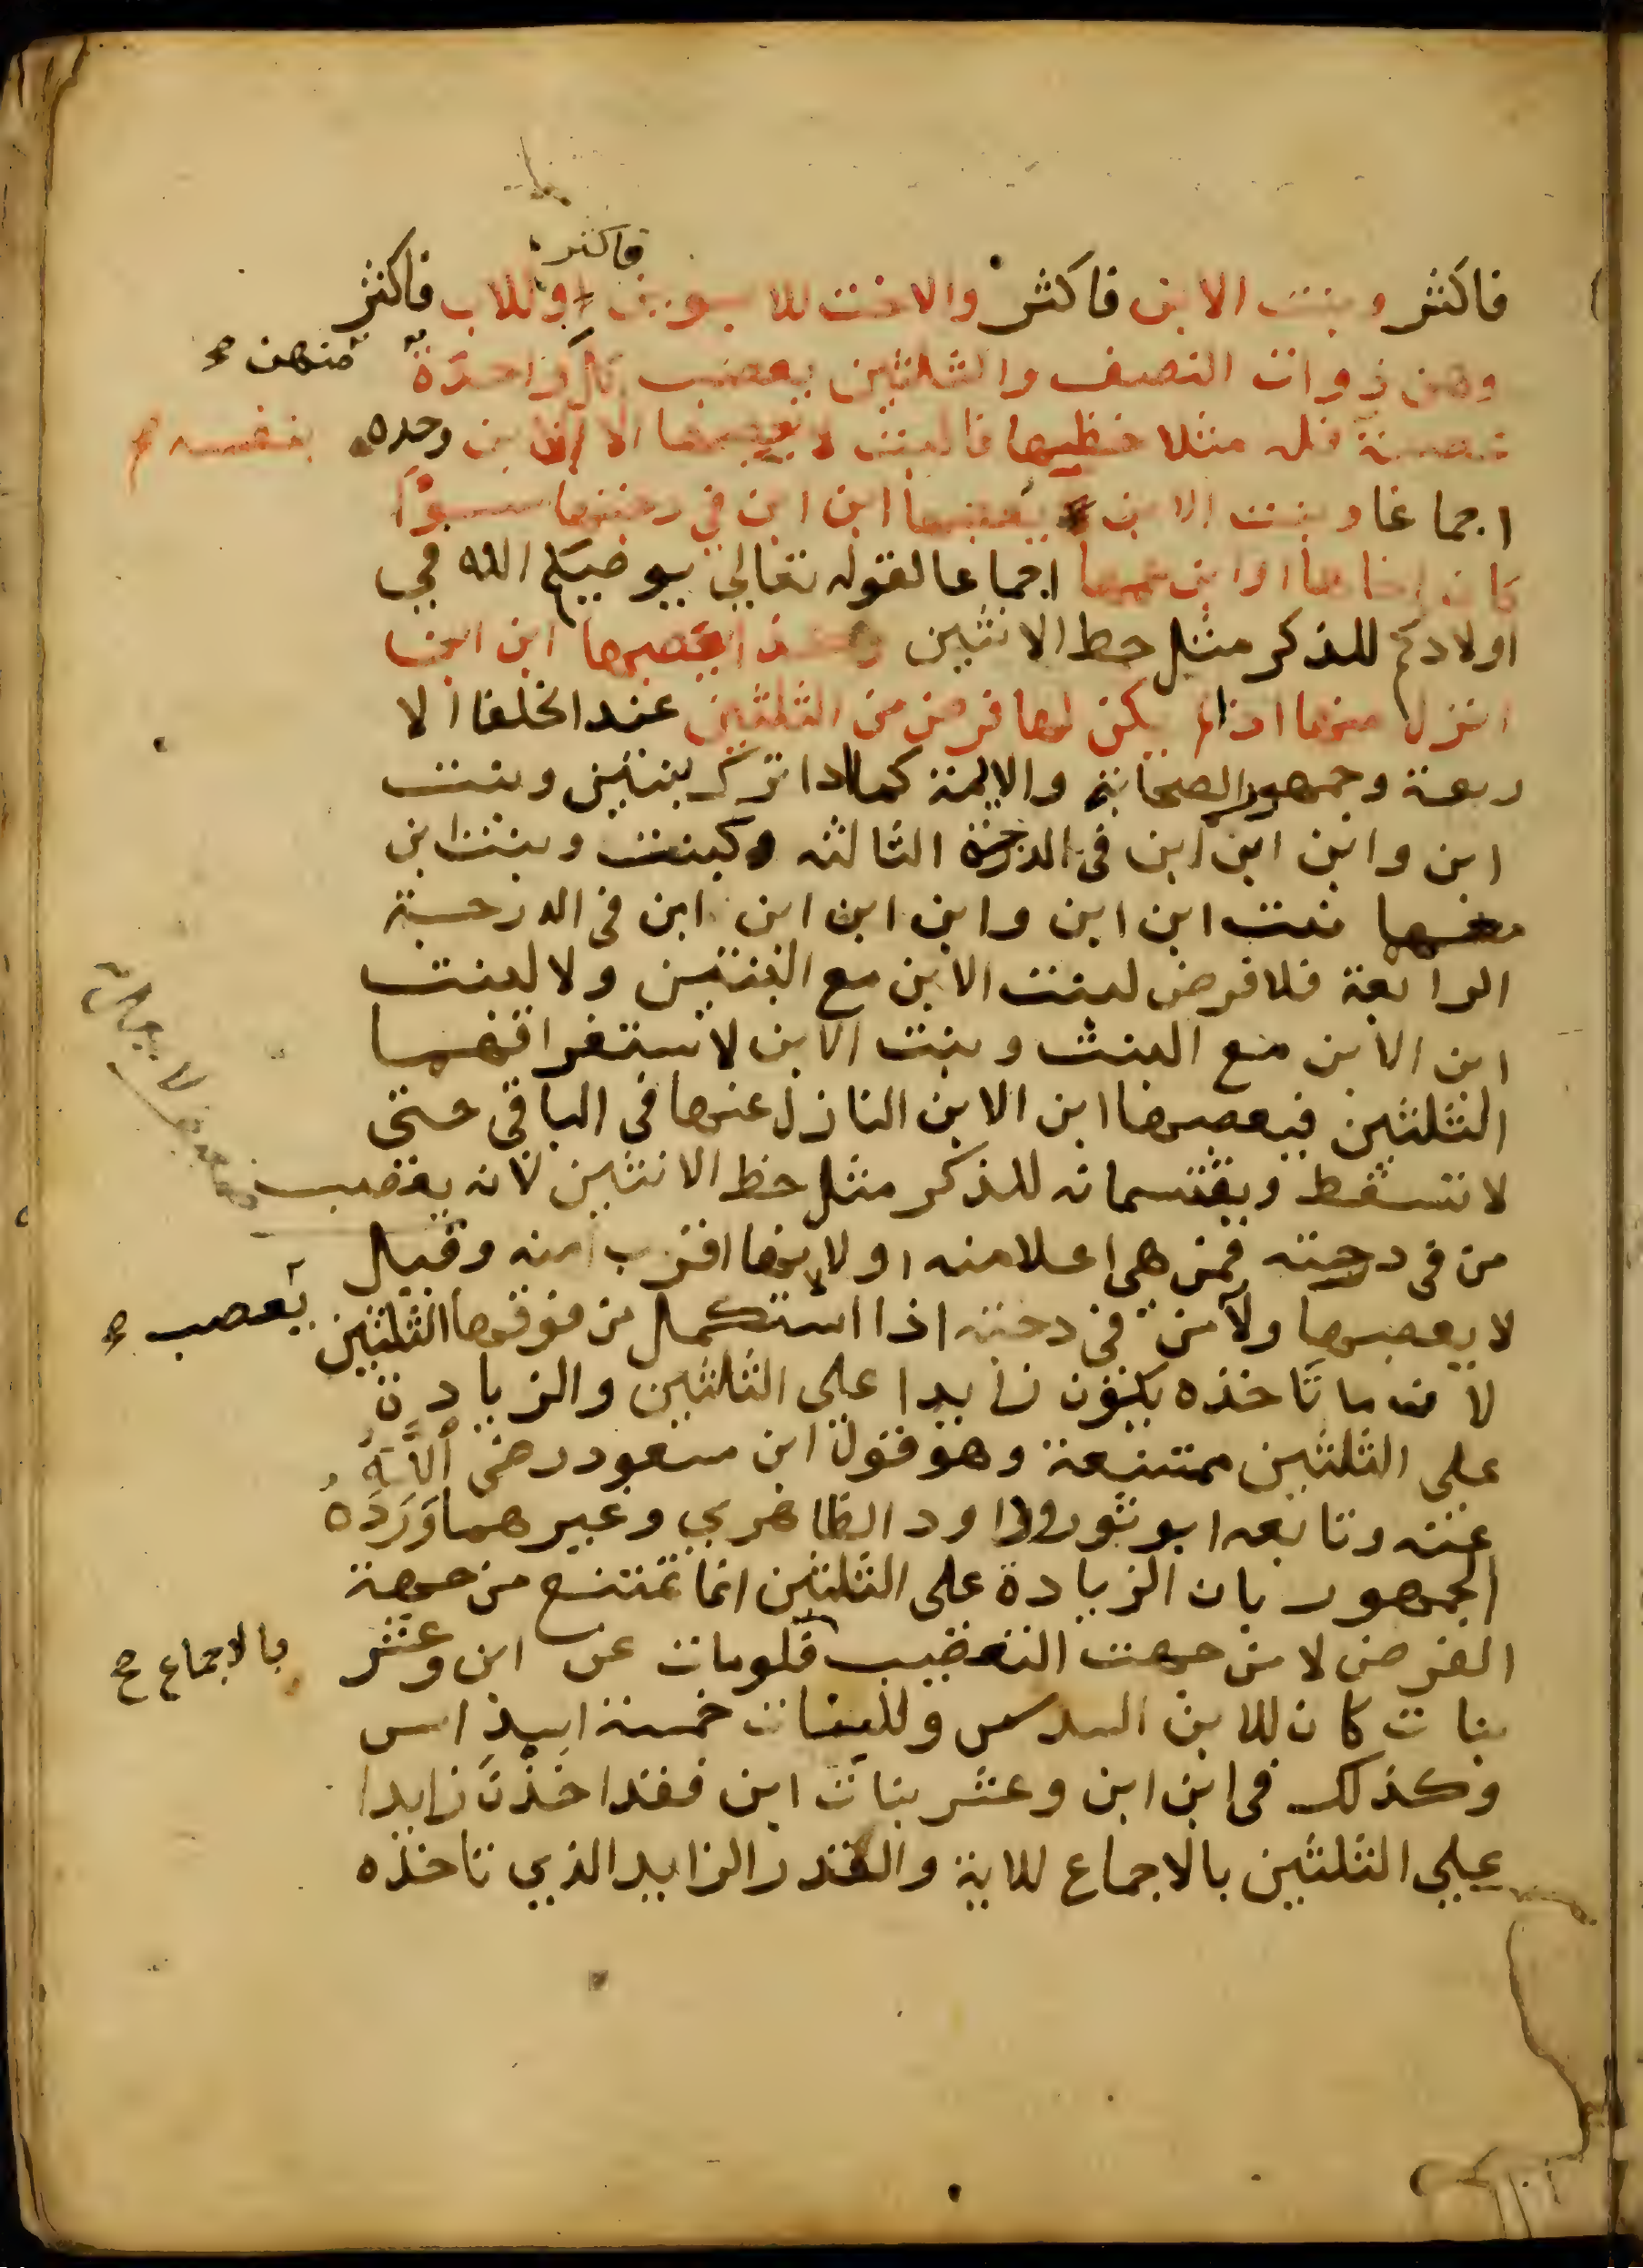 فاكثر
فاكثر وبنت الابن فاكثر والاخت للابوين او للاب فاكثر
وهن ذوات النصف والثلثين يعصب كل واحدة منهن صح
عصبة فله مثلا حظيها فالبنت لا يعصبها الا الابن وحده بنفسه صح
اجماعا وبنت الابن يعصبها ابن ابن في درجتها سوآ
كان اخاها او ابن عمها اجماعا لقوله تعالي يوصيكم الله في
اولادكم للذكر مثل حظ الانثيين وكذا يعصبها ابن ابن
انزل منها اذا لم يكن لها فرض من الثلثين عند الخلفا الا
ربعة وجمهور الصحابة والايمة كما اذا ترك بنتين وبنت
ابن وابن ابن ابن في الدرجة الثالثه وكبنت وبنت ابن
معهما بنت ابن ابن وابن ابن ابن ابن في الدرجة
الرابعة فلا فرض لبنت الابن مع البنتين ولا لبنت
ابن الابن مع البنت وبنت الابن لاستغراقهما
الثلثين فيعصبها ابن الابن النازل عنها في الباقي حتي
لا تسقط ويقتسمانه للذكر مثل حظ الانثيين لانه يعصب
من في درجته فمن هي اعلا منه اولا لانها اقرب منه وقيل
لا يعصبها ولا من في درجته اذا استكمل من فوقها الثلثين يعصب صح
لان ما تاخذه يكون زايدا علي الثلثين والزيادة
علي الثلثين ممتنعة وهو قول ابن مسعود رضي اللَّهُ
عنه وتابعه ابو ثور وداود الظاهري وغيرهما وَرَدَّهُ
الجمهور بان الزيادة علي الثلثين انما تمتنع من جهة
الفرض لا من جهت التعصيب فلومات عن ابن وعشر بالاجماع صح
بنات كان للابن السدس وللبنات خمسة اسداس
وكذلك في ابن ابن وعشر بنات ابن فقد اخذن زايدا
علي الثلثين بالاجماع للاية والقدر الزايد الذي تاخذه